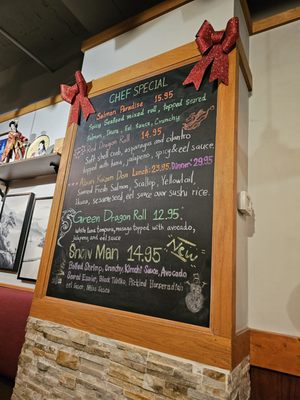 CHEF SPECIAL
Salmon Paradise 15.95
Spicy Seafood mixed roll, topped Seared
Salmon, Ikura, Eel Sauce, Crunchy
Red Dragon Roll 14.95
Soft shell crab, asparagus and cilantro
topped with tuna, jalapeno, spicy & eel sauce.
Kaisen Don Lunch: 23.95 Dinner: 29.95
Salmon, Scallop, Yellowtail,
sesame seed, eel sauce over sushi rice.
Green Dragon Roll 12.95
White tuna tempura, masago topped with avocado,
jalapeno, and eel sauce
Snow Man 14.95 New
Boiled Shrimp, Crunchy, Kimchi Sauce, Avocado
Seared Escolar, Black Tobiko, Pickled
eel Sauce, Sauce